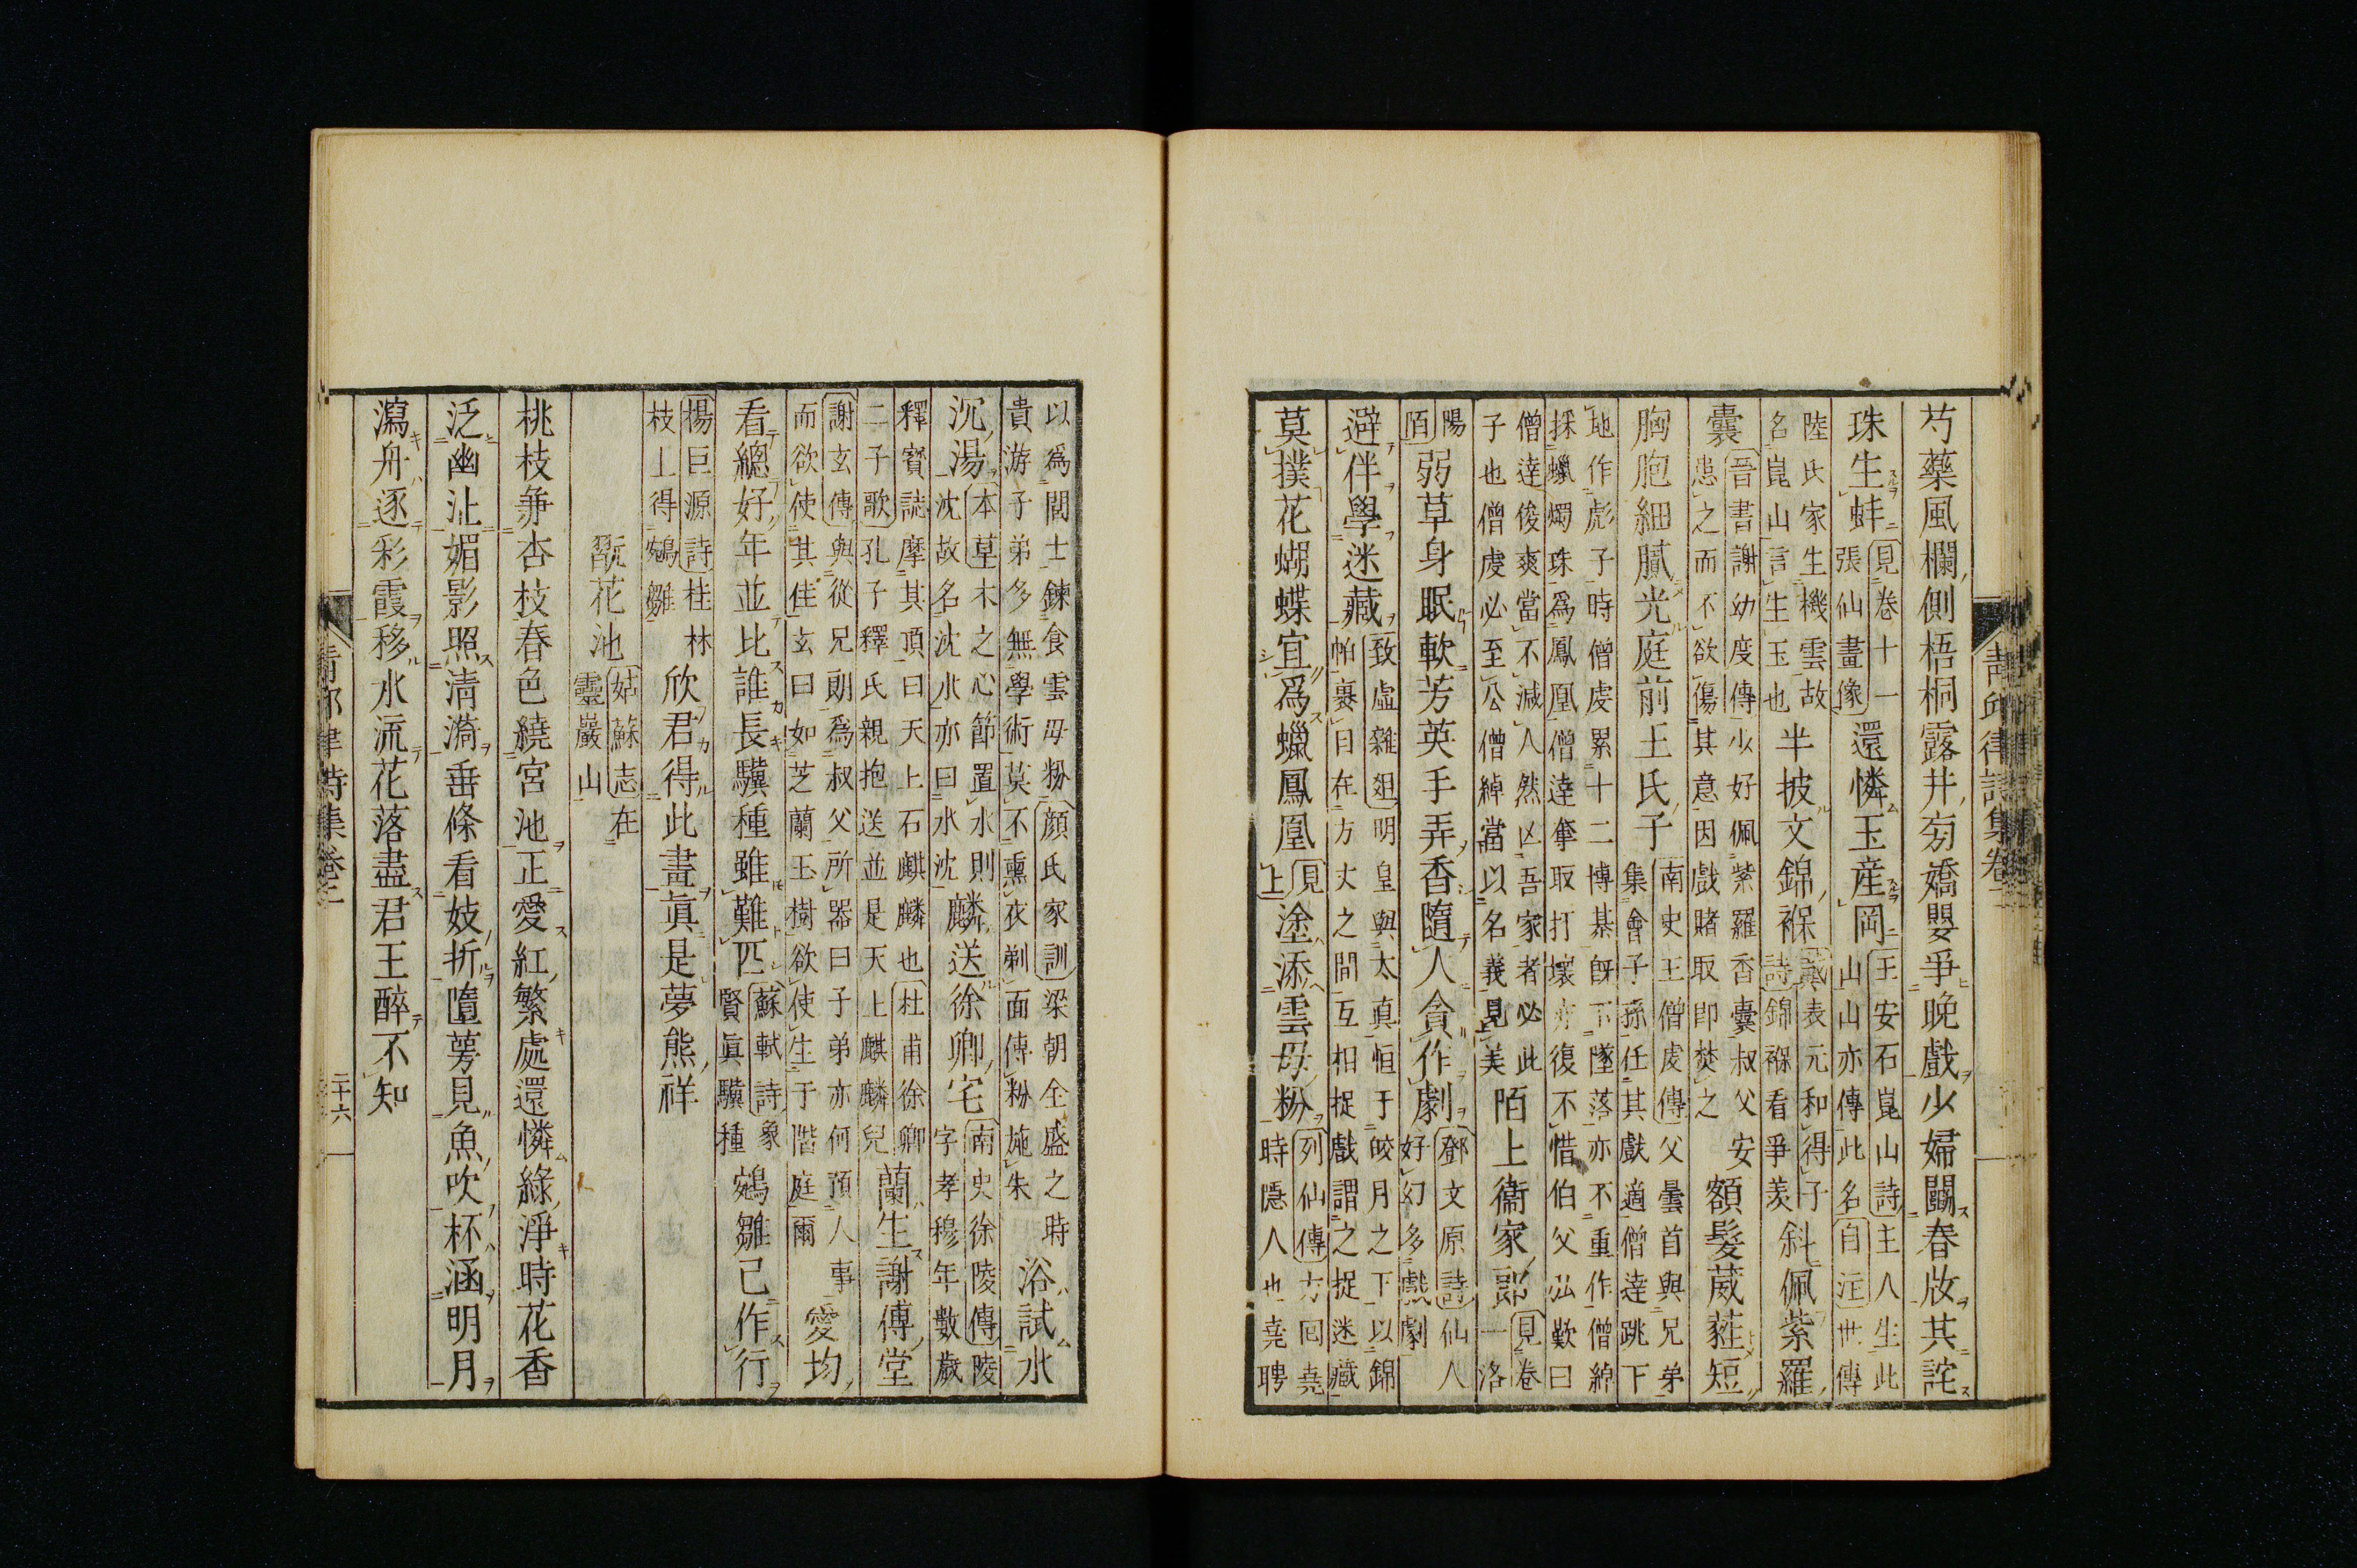 芍藥風欄側梧桐露井旁嬌嬰爭晚戲少婦鬭春妝其詫
珠生蚌見卷十一張仙畫像還憐玉産岡王安石崑山詩主人生此山山亦傳此名自注世傳
陸氏家生機雲故名崑山言生玉也半披文錦褓戴表元和得子詩錦褓看爭羨斜佩紫羅
囊晉書謝幼度傳少好佩紫羅香囊叔父安患之而不欲傷其意因戲賭取即焚之額髮葳蕤短
胸胞細膩光庭前王氏子南史王僧虔傳父曇首與兄弟集會子孫任其戲適僧達跳下
地作彪子時僧虔累十二博棊既不墜落亦不重作僧綽採蠟燭珠爲鳳凰僧達奪取打壞亦復不惜伯父弘歎曰
僧達俊爽當不減人然凶吾家者必此子也僧虔必至公僧綽當以名義見美陌上衞家郎見卷一洛
陽陌弱草身眠軟芳英手弄香隨人貪作劇鄧文原詩仙人好幻多戲劇
避伴學迷藏致虛雜俎明皇與太真恒于皎月之下以錦帕裹目在方丈之間互相捉戲謂之捉迷藏
莫撲花蝴蝶宜爲蠟鳳凰見上塗添雲母粉列仙傳方回堯時隱人也堯聘
青邱律詩集卷一
以爲閭士鍊食雲母粉顏氏家訓梁朝全盛之時貴游子弟多無學術莫不熏衣剃面傅粉施朱浴試水
沉湯本草木之心節置水則沈故名沈水亦曰水沈麟送徐卿宅南史徐陵傳陵字孝穆年數歲
釋寶誌摩其頂曰天上石麒麟也杜甫徐卿二子歌孔子釋氏親抱送並是天上麒麟兒蘭生謝傅堂
謝玄傳與從兄朗爲叔父所器曰子弟亦何預人事而欲使其佳玄曰如芝蘭玉樹欲使生于階庭爾愛均
看總好年並比誰長驥種雖難匹蘇軾詩象賢眞驥種鵷雛已作行
楊巨源詩桂林枝上得鵷雛欣君得此畫眞是夢熊祥
翫花池姑蘇志在靈巖山
桃枝兼杏枝春色繞宮池正愛紅繁處還憐綠淨時花香
泛幽沚媚影照清漪垂條看妓折墮萼見魚吹杯涵明月
瀉舟逐彩霞移水流花落盡君王醉不知
青邱律詩集卷一
二十六